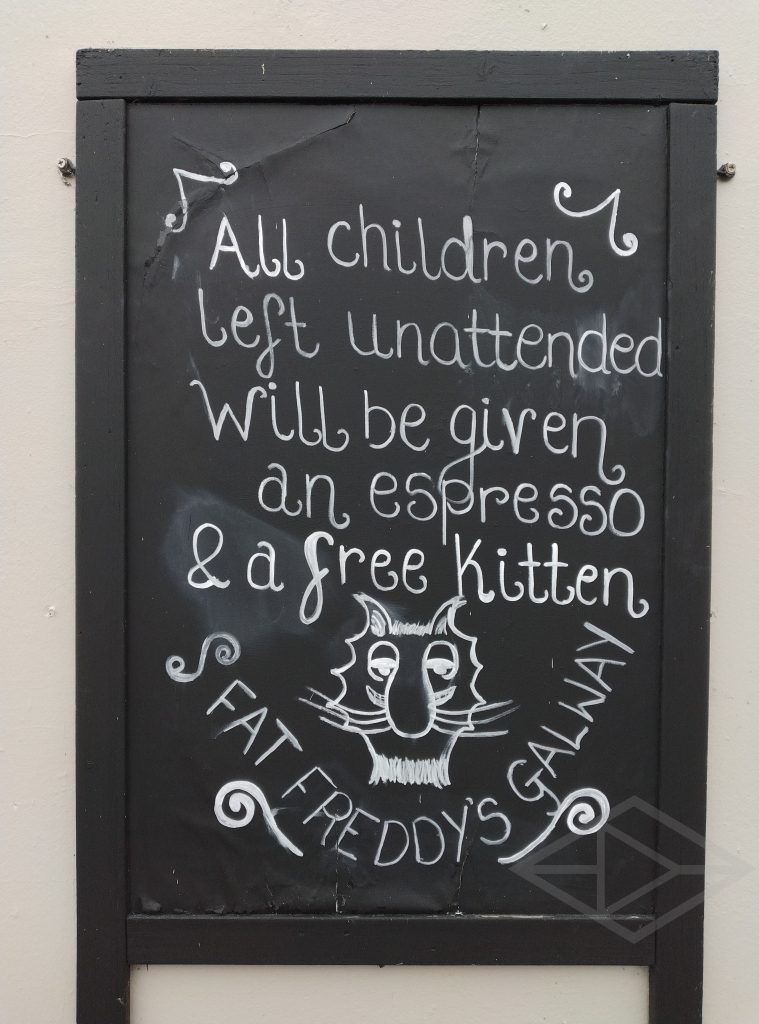 All children
left unattended
Will be given
an espresso
& a free Kitten
FAT FREDDY'S GALWAY